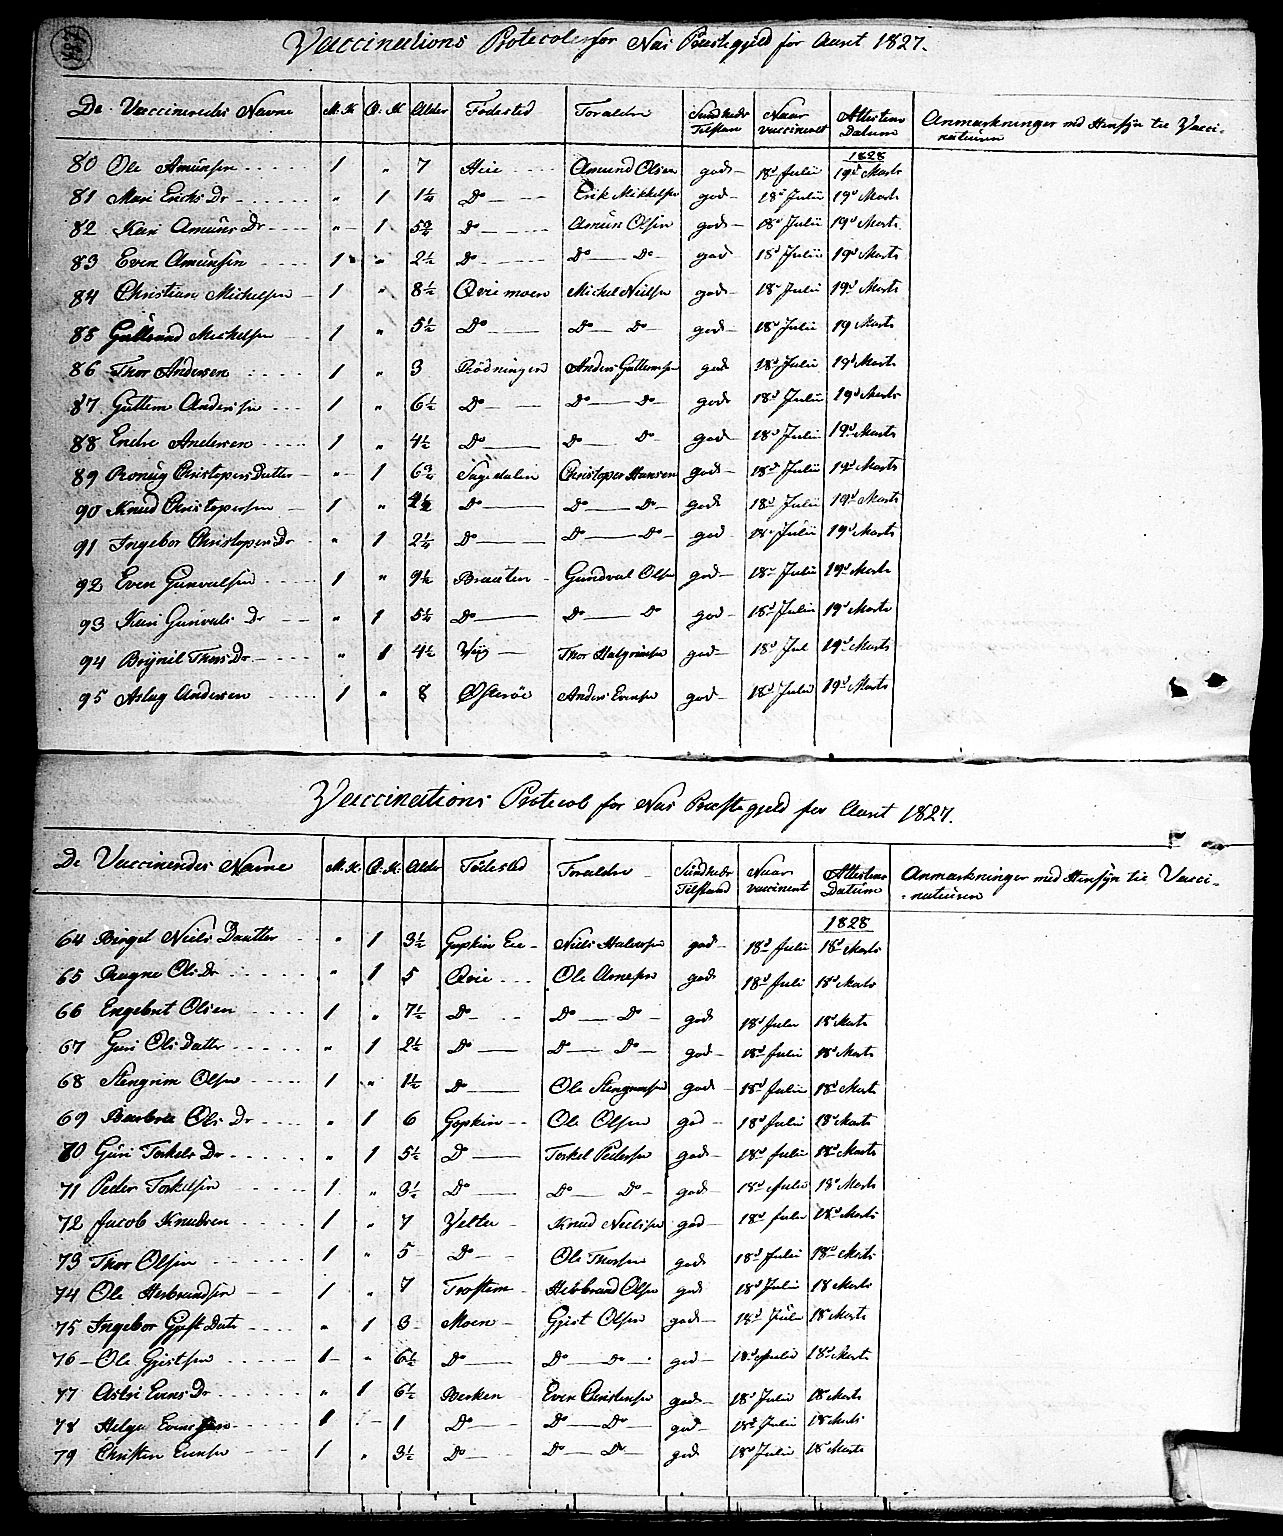 Vaccinations Protocol for Næs Præstegjeld for Aaret 1827.
De Vaccineredes Navne M.K. Q.K. Alder Fødested Forældre Sundheds Tilstand Naar vaccineret Attestens Datum Anmærkninger med Hensÿn til Vacci-
nationen
1828
80 Ole Amunsen 1 " 7 Hiie Amund Olsen god 18d Julii 19d Marts
81 Mari Erichs Dr " 1 1¼ Do Erik Mikkelsen god 18d Julii 19d Marts
82 Kari Amuns Dr " 1 5¾ Do Amun Olsen god 18d Julii 19d Marts
83 Even Amunsen 1 " 2½ Do Do Do god 18d Julii 19d Marts
84 Christian Michelsen 1 " 8½ Qvie moen Michel Nielsen god 18d Julii 19d Marts
85 Gulbrand Michelsen 1 " 5½ Do Do Do god 18d Julii 19 Marts
86 Thor Andersen 1 " 3 Rødningen Anders Guttormsen god 18d Julii 19d Marts
87 Guttorm Andersen 1 " 6½ Do Do Do god 18d Julii 19d Marts
88 Endre Andersen 1 " 4½ Do Do Do god 18d Julii 19d Marts
89 Ronnug Christopers Datter " 1 6¾ Sagedalen Christoper Hansen god 18d Julii 19d Marts
90 Knud Christopersen 1 " Do Do Do god 18d Julii 19d Marts
91 Ingebor Christopers Dr " 1 2¼ Do Do Do god 18d Julii 19d Marts
92 Even Gunvalsen 1 " 9½ Braaten Gundval Olsen god 18d Julii 19d Marts
93 Kari Gunvals Dr " 1 5¼ Do Do Do god 18d Julii 19d Marts
94 Brÿnil Thors Dr " 1 4½ Thor Halgrimsen god 18d Jul 19d Marts
95 Aslag Andersen 1 " 8 Østerøe Anders Evensen god 18d Julii 19d Marts
Vaccinations Protocol for Næs Præstegjeld for Aaret 1827.
De Vaccineredes Navne M.K. Q.K. Alder Fødested Forældre Sundheds Tilstand Naar vaccineret Attestens Datum Anmærkninger med Hensÿn til Vacci-
-nationen
1828
64 Birget Niels Daatter " 1 3½ Gopkin Eie Niels Halvorsen god 18d Julii 18d Marts
65 Ragne Ols Dr " 1 5 Qvie Ole Arnesen god 18d Julii 18d Marts
66 Engebret Olsen 1 " 7½ Do Do Do god 18d Julii 18d Marts
67 Guri Ols Datter " 1 2½ Do Do Do god 18d Julii 18d Marts
68 Stengrim Olsen 1 " 1½ Do Ole Stengrimsen god 18d Julii 18d Marts
69 Barbra Ols Dr " 1 6 Gopkin Ole Olsen god 18d Julii 18d Marts
70 Guri Torkels Dr " 1 5½ Do Torkel Pedersen god 18d Julii 18d Marts
71 Peder Torkelsen 1 " 3½ Do Do Do god 18d Julii 18d Marts
72 Jacob Knudsen 1 " 7 Velter Knud Nielsen god 18d Julii 18d Marts
73 Thor Olsen 1 " 5 Do Ole Thorsen god 18d Julii 18d Marts
74 Ole Herbrandsen 1 " 7 Trostem Hebbrand Olsen god 18d Julii 18 Marts
75 Ingebor Gjest Datr " 1 3 Moen Gjest Olsen god 18d Julii 18d Marts
76 Ole Gjestsen 1 " 6½ Do Do Do god 18d Julii 18d Marts
77 Astri Evens Dr " 1 6½ Berken Even Christensen god 18d Julii 18 Marts
78 Helge Evensen 1 1 Do Do Do god 18d Julii 18 Marts
79 Christen Evensen 1 " 3½ Do Do Do god 18d Julii 18d Marts